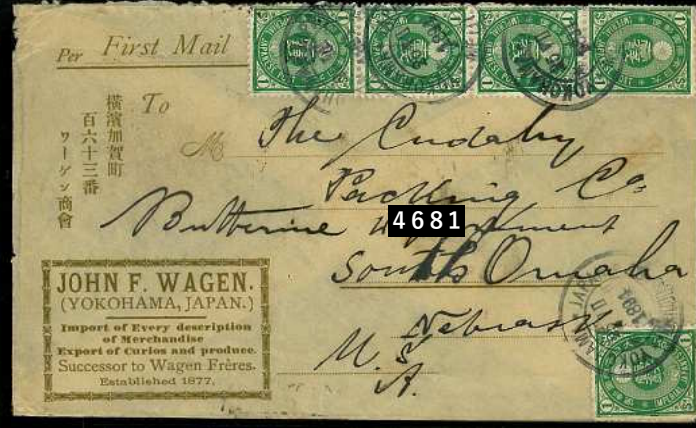 Per First Mail
To
M
橫濱加賀町
百六十三番
ワーゲン商會
The Cudahy
Packing Co
Butterine Department
South Omaha
Nebraska
U.S.A.
4681
JOHN F. WAGEN.
(YOKOHAMA, JAPAN.)
Import of Every description
of Merchandise
Export of Curios and produce.
Successor to Wagen Frères.
Established 1877.